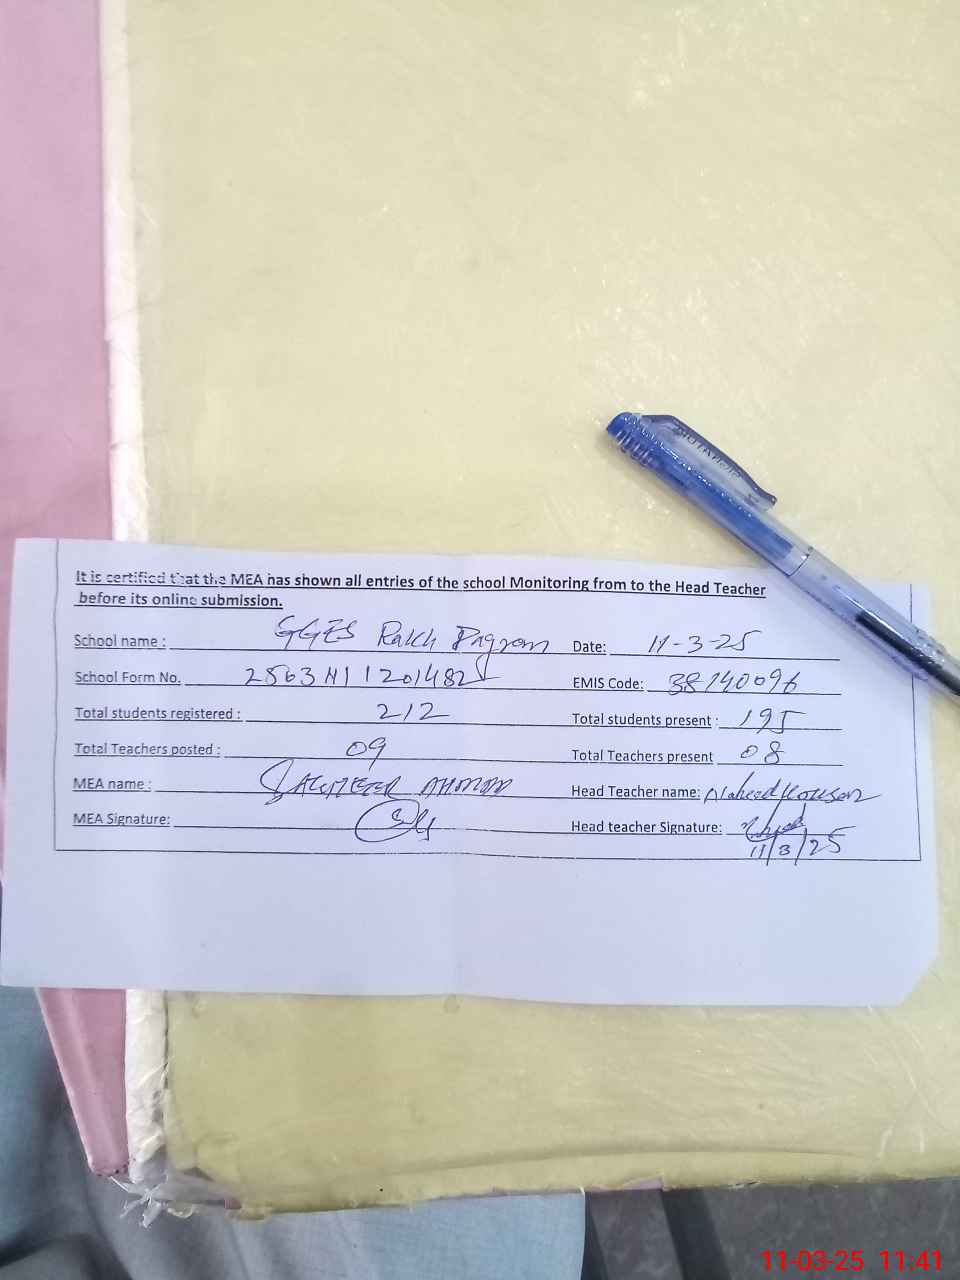 It is certified that the MEA has shown all entries of the school Monitoring from to the Head Teacher
before its online submission.
School name : GGES Rakh Date: 11-3-25
School Form No. EMIS Code: 38140096
Total students registered : 212 Total students present : 195
Total Teachers posted : 09 Total Teachers present 08
MEA name : AHMAD Head Teacher name: Naheed Kousar
MEA Signature: Head teacher Signature:
11/3/25
11-03-25 11:41